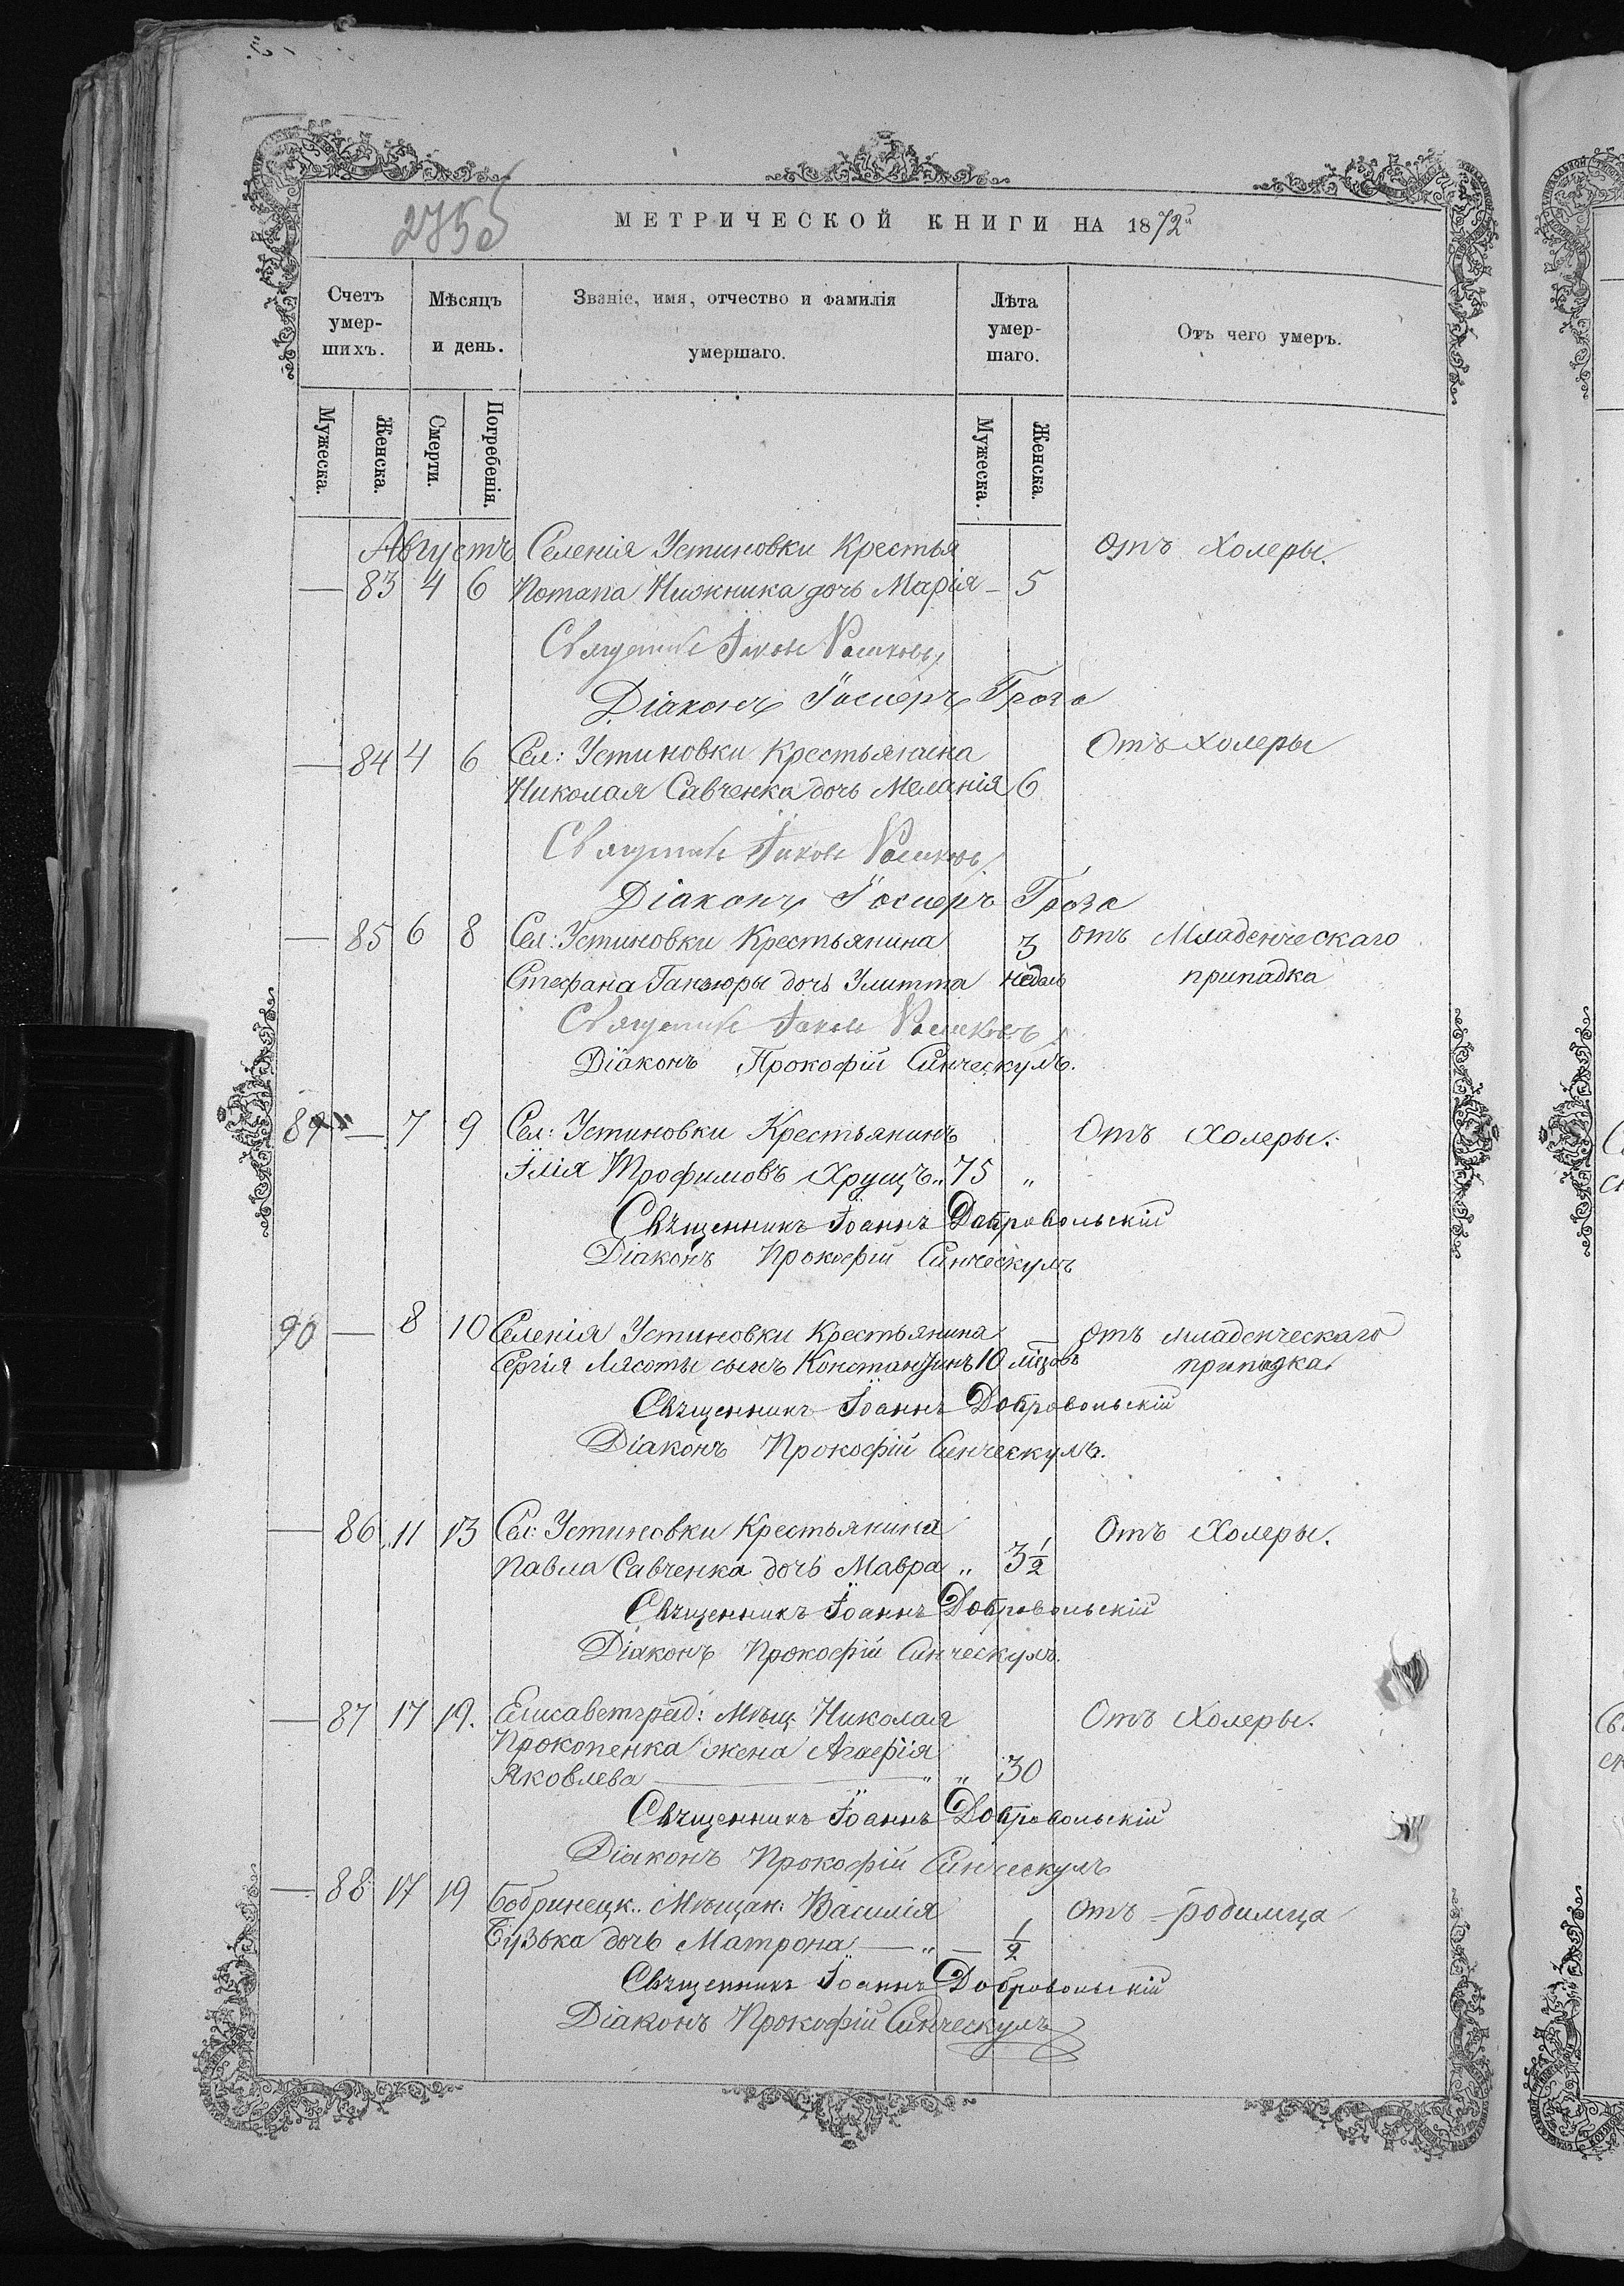 2755
МЕТРИЧЕСКОЙ КНИГИ НА 1872й
Счетъ умер-шихъ.
Мѣсяцъ и день.
Званіе, имя, отчество и фамилія умершаго.
Лѣта умер-шаго.
Отъ чего умеръ.
Мужеска.
Женска.
Смерти.
Погребенія.
Мужеска.
Женска.
Августъ Селенія Устиновки Крестья отъ холеры.
— 83 4 6 Потапа Нижника дочь Марія — 5
Священникъ Іаковъ
Діаконъ Іосифъ Гроза
— 84 4 6 Сел: Устиновки Крестьянина Отъ холеры
Николая Савченка дочь Меланія 6
Священникъ Іаковъ
Діаконъ Іосифъ Гроза
— 85 6 8 Сел: Устиновки Крестьянина 3 отъ Младенческаго
Стефана дочь Улитта недель припадка
Священникъ Іаковъ
Діаконъ Прокофій Синческулъ.
89 — 7 9 Сел: Устиновки Крестьянинъ Отъ Холеры.
Ілія Трофимовъ Хрущъ „ 75 „
Священникъ Іоаннъ Добровольскій
Діаконъ Прокофій Синческулъ
90 — 8 10 Селенія Устиновки Крестьянина отъ младенческаго
Сергія Лясоты сынъ Константинъ 10 мѣсяцовъ припадка
Священникъ Іоаннъ Добровольскій
Діаконъ Прокофій Синческулъ.
— 86 11 13 Сел: Устиновки Крестьянина Отъ Холеры.
Павла Савченка дочь Мавра „ 3½
Священникъ Іоаннъ Добровольскій
Діаконъ Прокофій Синческулъ.
— 87 17 19. Елисаветград: Мѣщ. Николая Отъ Холеры.
Прокопенка жена Агафія
Яковлева — „ „ 30
Священникъ Іоаннъ Добровольскій
Діаконъ Прокофій Синческулъ
— 88 17 19 Бобринецк.. Мѣщан: Василія отъ родимца
Бузька дочь Матрона — „ — ½
Священникъ Іоаннъ Добровольскій
Діаконъ Прокофій Синческулъ